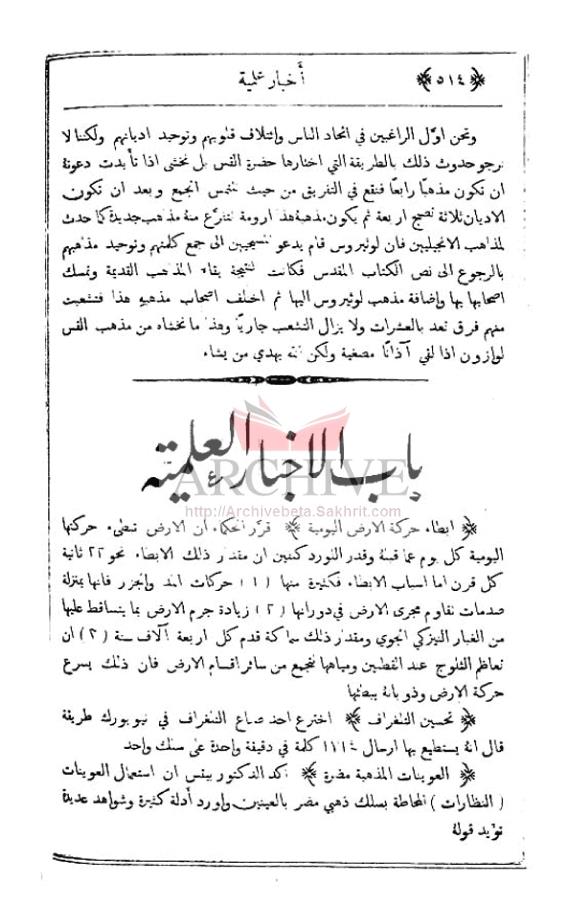 ﴿ ٥١٤ ﴾ أخبار علمية
ونحن اوّل الراغبين في اتحاد الناس وائتلاف قلوبهم وتوحيد اديانهم ولكننا لا
نرجو حدوث ذلك بالطريقة التي اختارها حضرة القس بل نخشى اذا تأيدت دعوتهُ
ان تكون مذهبًا رابعًا فنقع في التفريق من حيث نلتمس الجمع وبعد ان تكون
الاديان ثلاثة تصبح اربعة ثم يكون مذهبهُ هذا ارومة تتفرّع منهُ مذهب جديدة كما حدث
لمذاهب الانجيليين فان لوثيروس قام يدعو المسيحيين الى جمع كلمتهم وتوحيد مذهبهم
بالرجوع الى نص الكتاب المقدس فكانت النتيجة بقاء المذهب القديمة وتمسك
اصحابها بها وإضافة مذهب لوثيروس اليها ثم اختلف اصحاب مذهبهِ هذا فتشعبت
منهم فرق تعد بالعشرات ولا يزال التشعب جاريًا وهذا ما نخشاه من مذهب القس
لوازون اذا لقي آذانًا مصغية ولكن الله يهدي من يشاء
باب الاخبار العلمية
ARCHIVE
http://Archivebeta.Sakhrit.com
﴿ ابطاء حركة الارض اليومية ﴾ قرّر الحكماء أن الارض تبطىء حركتها
اليومية كل يوم عما قبلهُ وقدر اللورد كلفين ان مقدار ذلك الابطاء نحو ٢٢ ثانية
كل قرن اما اسباب الابطاء فكثيرة منها (١) حركات المد والجزر فانها بمنزلة
صدمات تقاوم مجرى الارض في دورانها (٢) زيادة جرم الارض بما يتساقط عليها
من الغبار النيزكي الجوي ومقدار ذلك سماكة قدم كل اربعة آلاف سنة (٣) ان
تعاظم الثلوج عند القطبين ومياهها تتجمع من سائر اقسام الارض فان ذلك يسرع
حركة الارض وذوبانهُ يبطئها
﴿ تحسين التلغراف ﴾ اخترع احد صناع التلغراف في نيويورك طريقة
قال انهُ يستطيع بها ارسال كلمة في دقيقة واحدة على سلك واحد
﴿ العوينات المذهبة مضرة ﴾ اكد الدكتور ان استعمال العوينات
(النظارات) المحاطة بسلك ذهبي مضر بالعينين واورد أدلة كثيرة وشواهد عديدة
تؤيد قولهُ